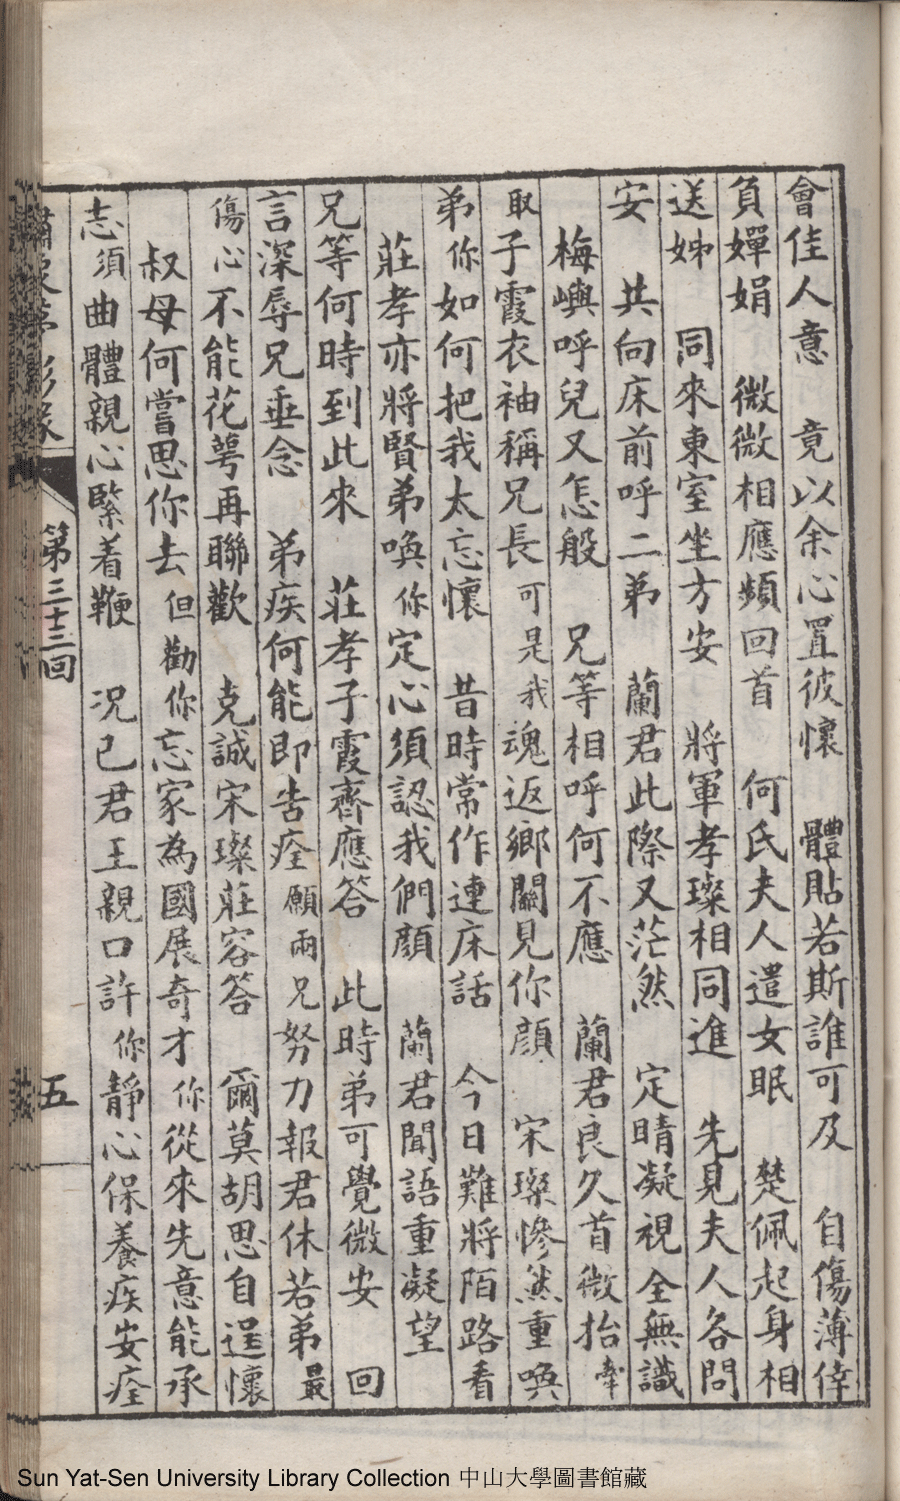 會佳人意　竟以余心置彼懷　體貼若斯誰可及　自傷薄倖
負嬋娟　微微相應頻回首　何氏夫人遣女眠　楚佩起身相
送姊　同來東室坐方安　將軍孝璨相同進　先見夫人各問
安　共向床前呼二弟　蘭君此際又茫然　定睛凝視全無識
梅嶼呼兒又怎般　兄等相呼何不應　蘭君良久首微抬　牽
取子霞衣袖稱兄長　可是我魂返鄉關見你顏　宋璨慘然重喚
弟　你如何把我太忘懷　昔時常作連床話　今日難將陌路看
莊孝亦將賢弟喚　你定心須認我們顏　蘭君聞語重凝望
兄等何時到此來　莊孝子霞齊應答　此時弟可覺微安　回
言深辱兄垂念　弟疾何能即告痊　願兩兄努力報君休若弟　最
傷心不能花萼再聯歡　克誠宋璨莊容答　爾莫胡思自逞懷
叔母何嘗思你去　但勸你忘家為國展奇才　你從來先意能承
志　須曲體親心緊着鞭　況已君王親口許　你靜心保養疾安痊
第三十三回
五
Sun Yat-Sen University Library Collection 中山大學圖書館藏